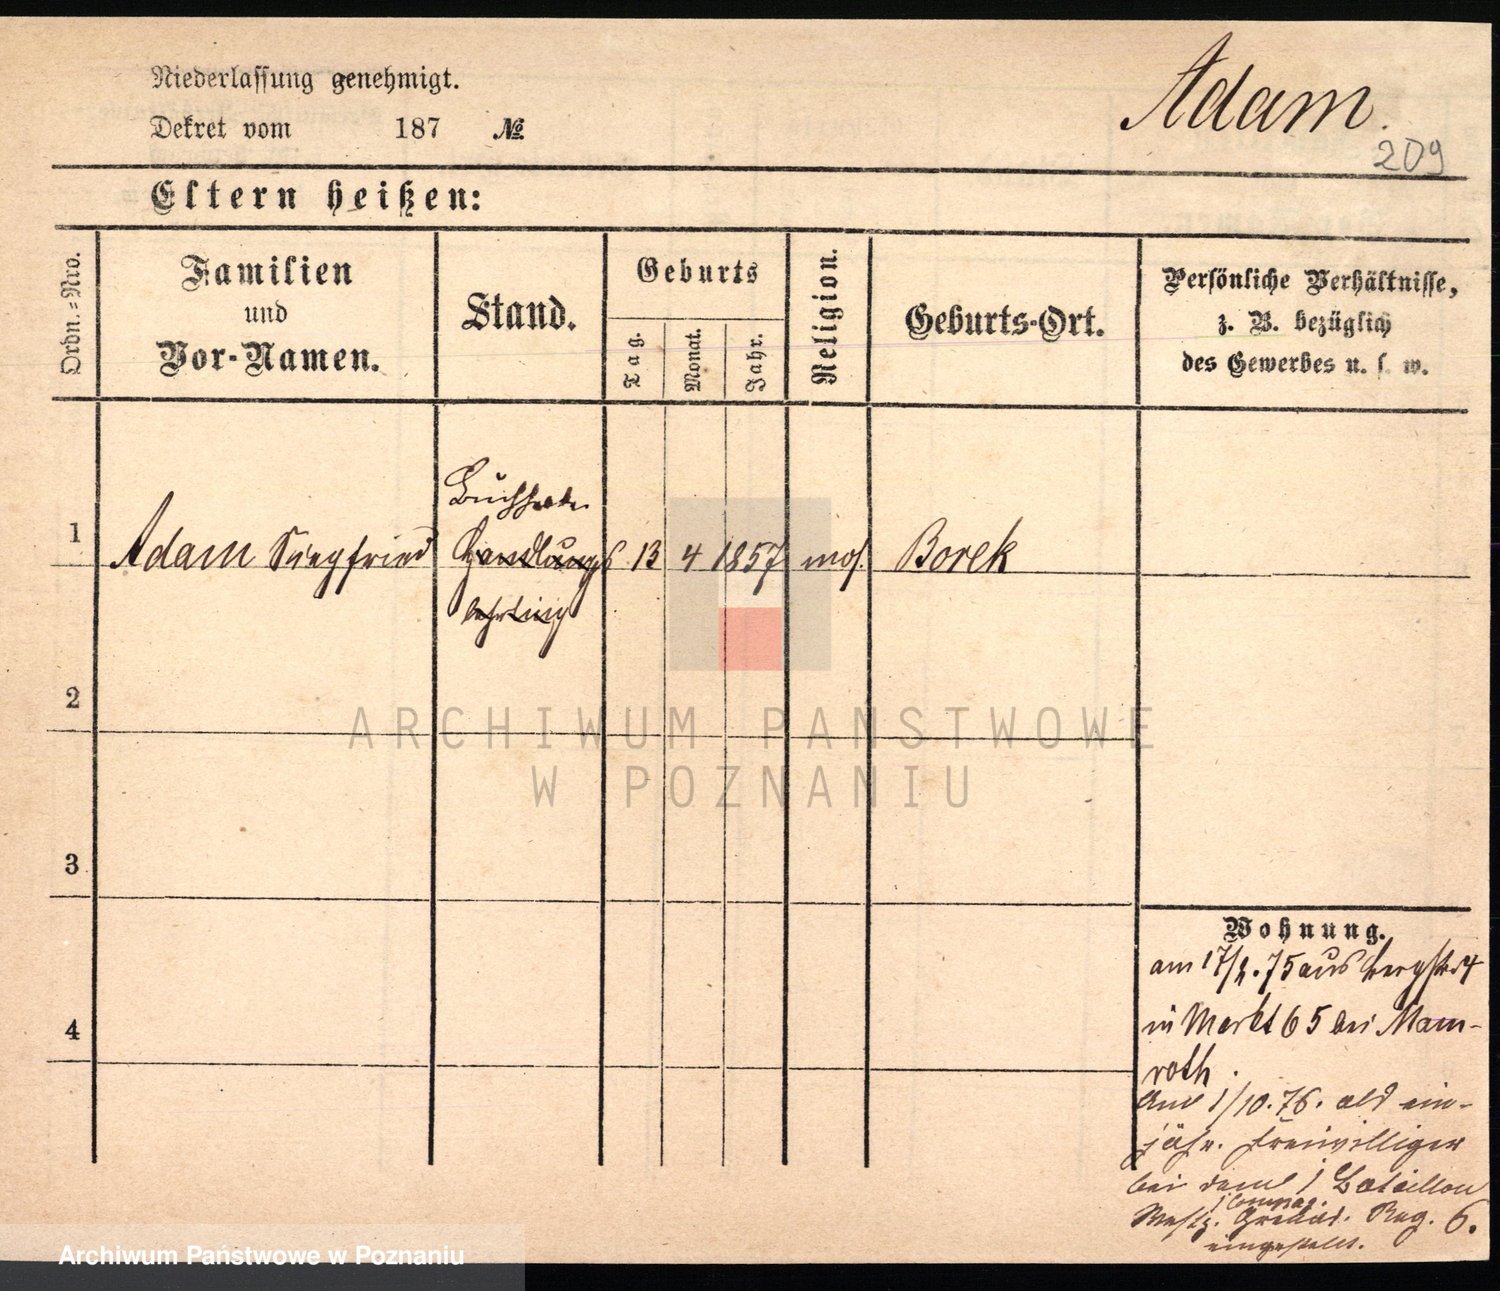 Niederlassung genehmigt.
Dekret vom 187 №
Adam.
209
Eltern heißen:
Ordn.-Nro.
Familien
und
Vor-Namen.
Stand.
Geburts
Tag.
Monat.
Jahr.
Religion.
Geburts-Ort.
Persönliche Verhältnisse,
z. B. bezüglich
des Gewerbes u. s. w.
Buchhalter
1 Adam Siegfried Handlungs 13 4 1857 mos. Borek
lehrling
2
3
4
Wohnung.
am 17/2.75 aus Bergstr 4
in Markt 65 bei Mam-
roth.
Am 1/10.76. als ein-
jähr. Freiwilliger
bei dem 1 Bataillon
1 Compag.
Westp. Grenad. Reg. 6.
eingestellt.
ARCHIWUM PAŃSTWOWE
W POZNANIU
Archiwum Państwowe w Poznaniu